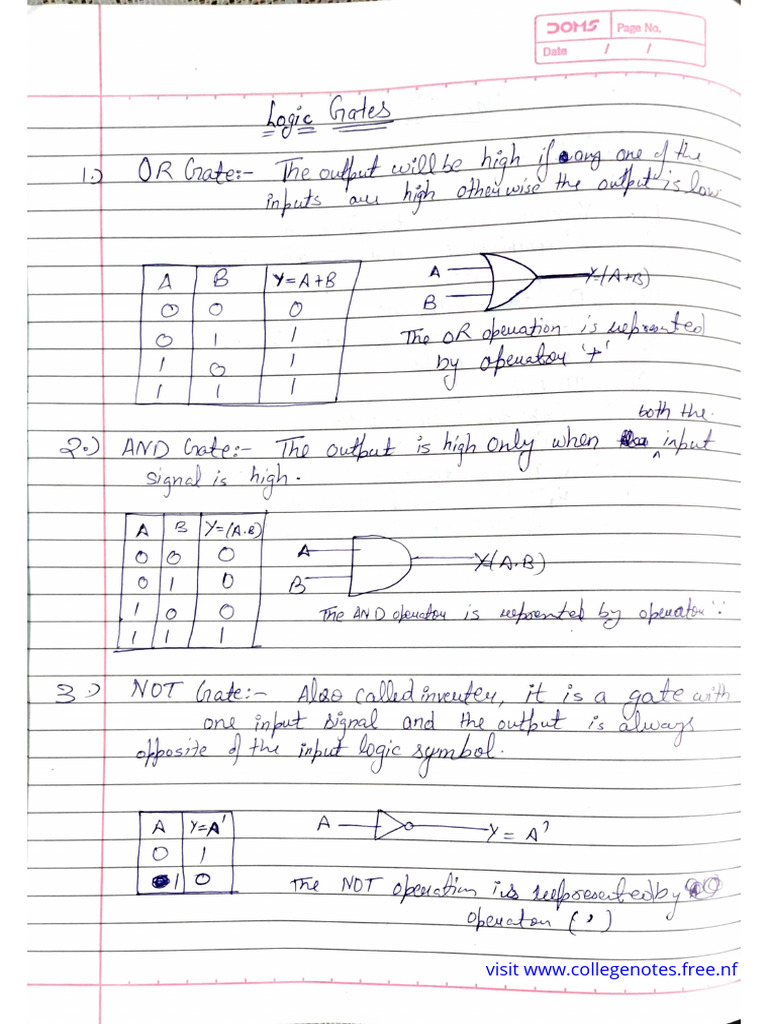 DOMS Page No.
Date / /
Logic Gates
1.) OR Gate:- The output will be high if any one of the
inputs are high otherwise the output is low
A B Y=A+B
0 0 0
0 1 1
1 0 1
1 1 1
A
B
Y=(A+B)
The OR operation is reprented
by operator '+'
both the
2.) AND Gate:- The output is high only when ^ input
signal is high.
A B Y=(A.B)
0 0 0
0 1 0
1 0 0
1 1 1
A
B
Y(A.B)
The AND operator is reprented by operator '.'
3.) NOT Gate:- Also called inverter, it is a gate with
one input signal and the output is always
opposite of the input logic symbol.
A Y=A'
0 1
1 0
A
Y = A'
The NOT operation is represented by
operator (')
visit www.collegenotes.free.nf